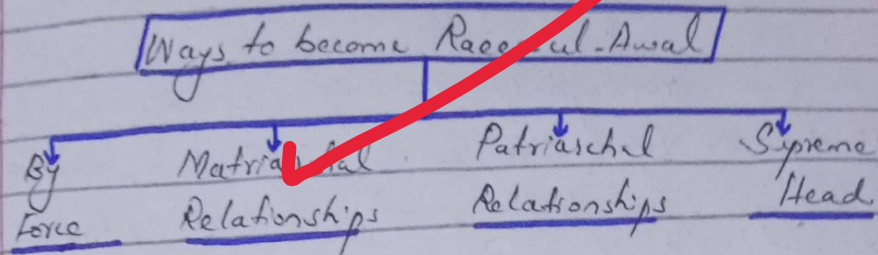 Ways to become Raees-ul-Awal
By Force
Matriarchal Relationships
Patriarchal Relationships
Supreme Head